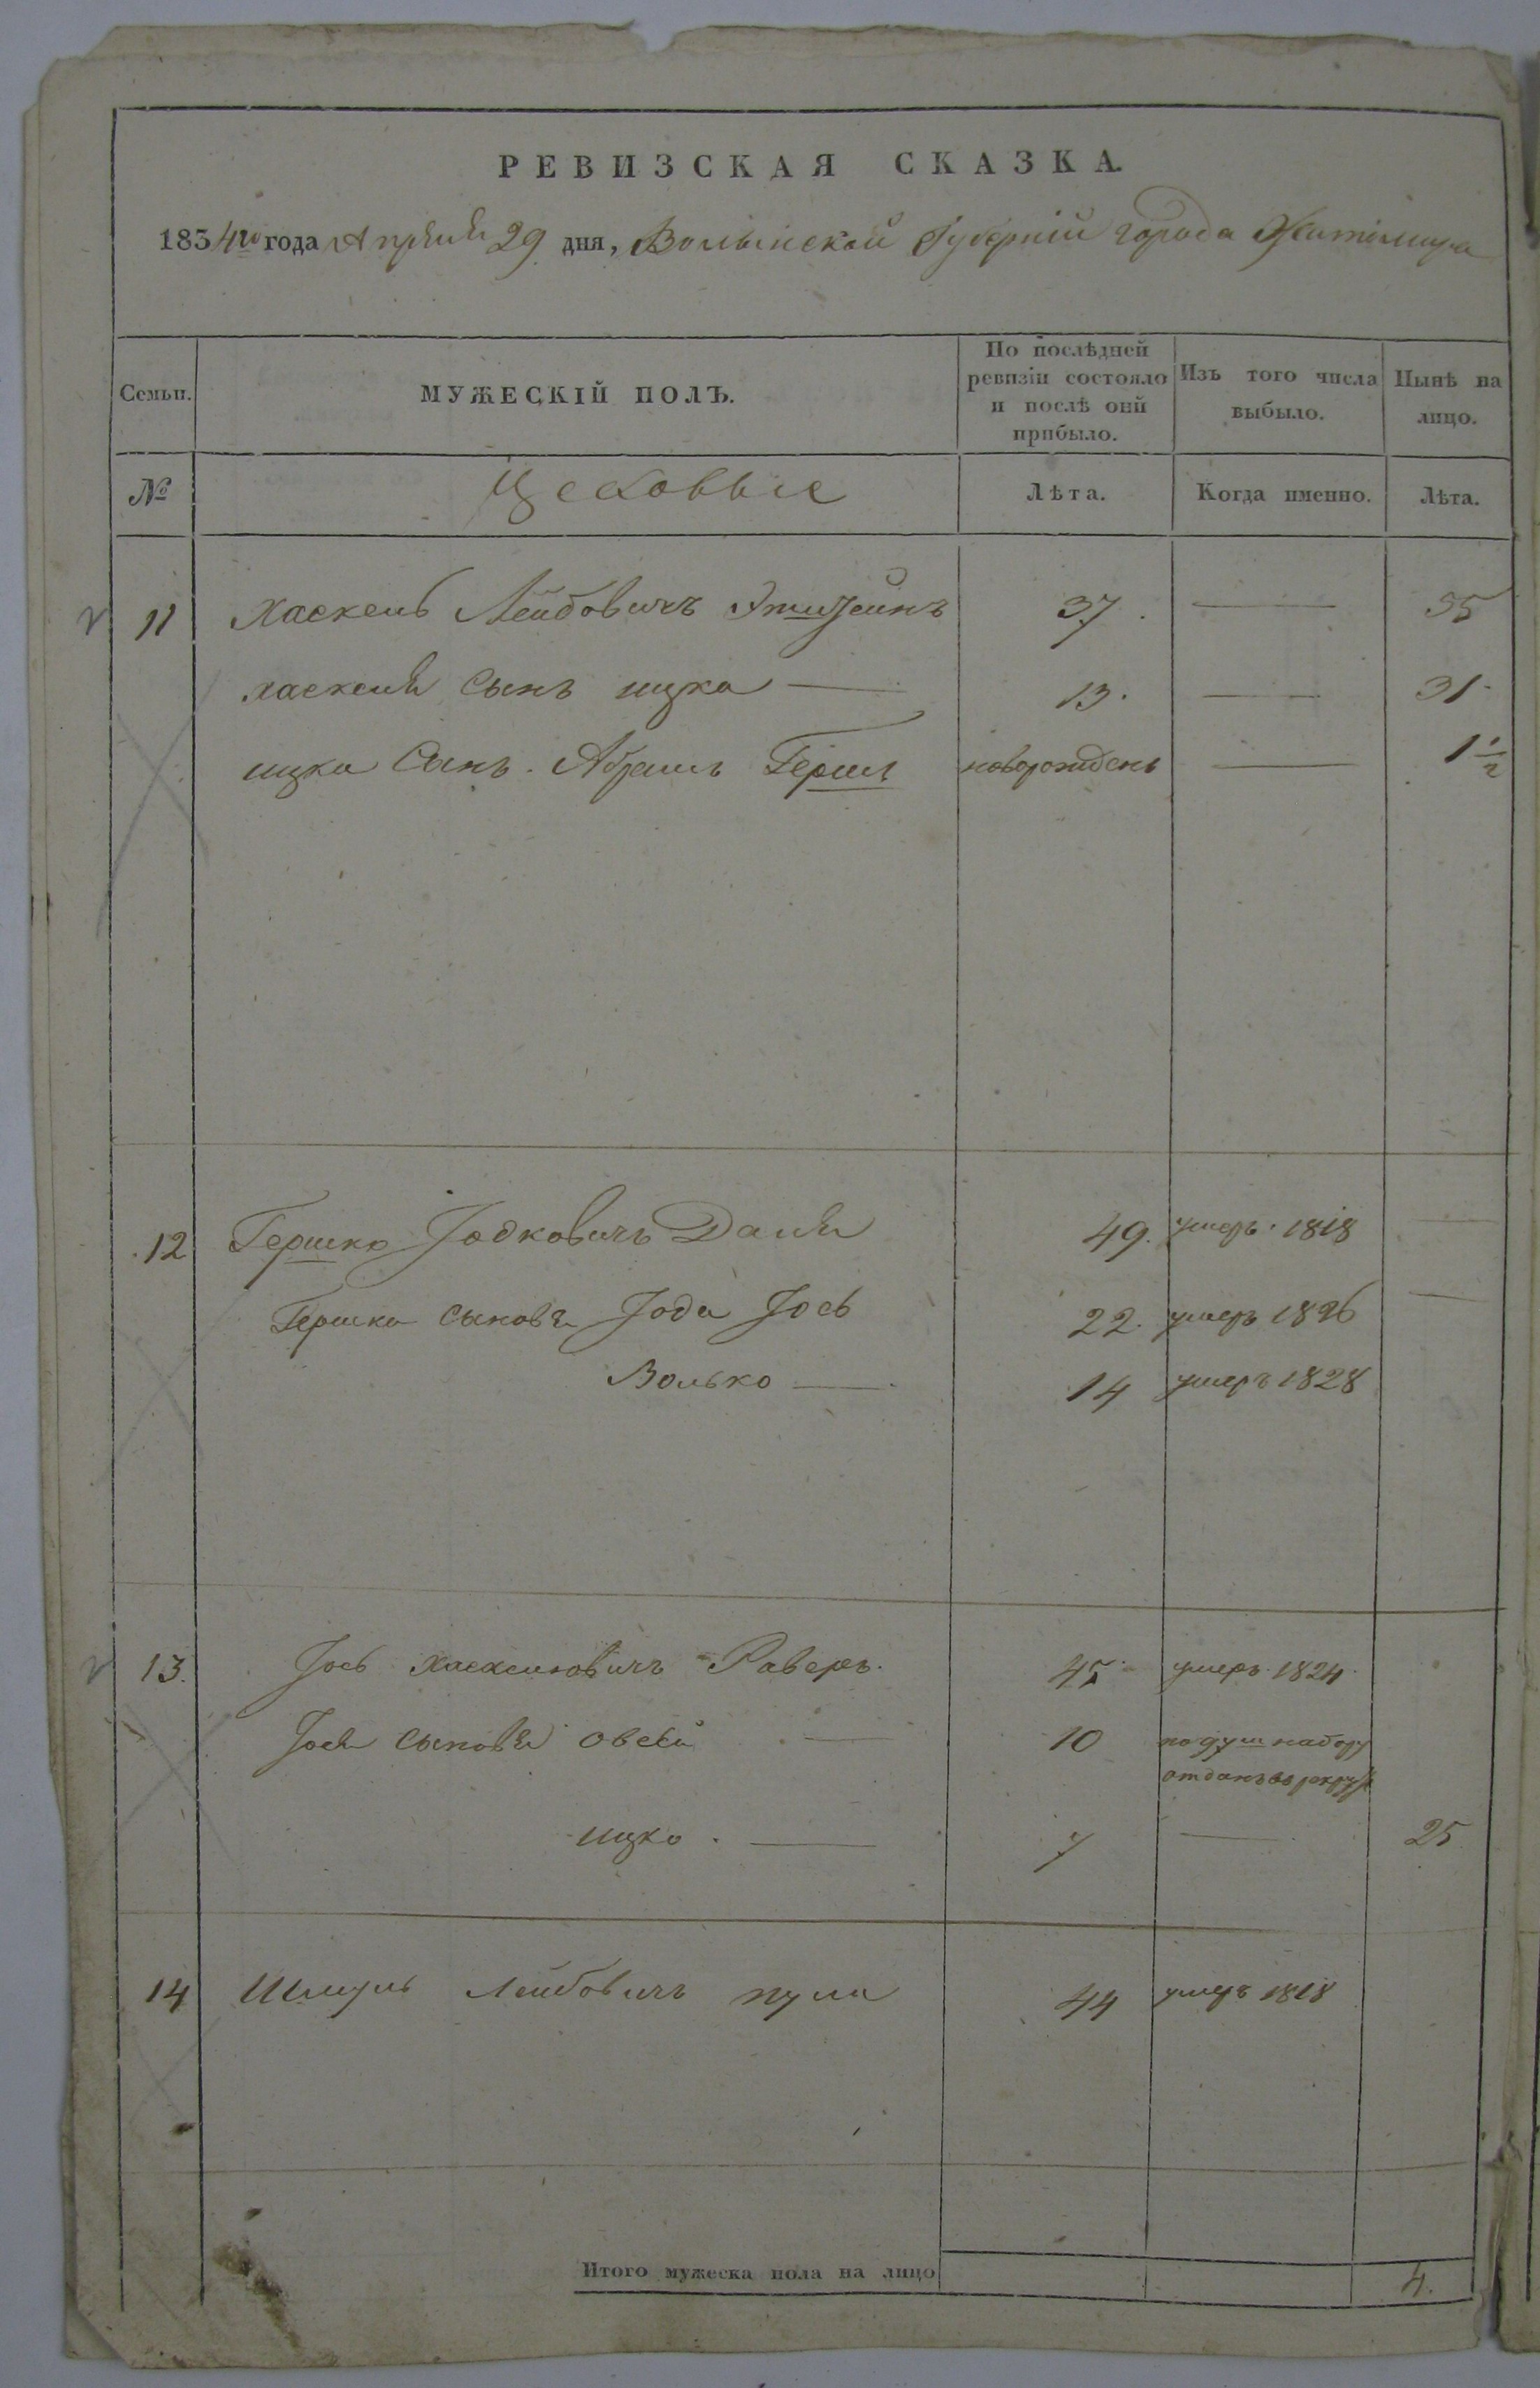 РЕВИЗСКАЯ СКАЗКА.
1834го года Апреля 29 дня, Волынской Губернии города Житомира
Семьи. МУЖЕСКІЙ ПОЛЪ. По послѣдней ревизіи состояло и послѣ оной прибыло. Изъ того числа выбыло. Нынѣ на лицо.
№ Цеховые Лѣта. Когда именно. Лѣта.
11 Хаскель Лейбовичъ 37. — 55
хаскеля Сынъ ицка — 13. — 31
ицка Сынъ. Абрамъ Герш новорожденъ — 1 1/2
12 Гершко Іодковичъ Даля 49. умеръ 1818 —
Гершка сыновя Іода Іось 22. умеръ 1826 —
Волько — 14 умеръ 1828
13. Іось Хаскелювичъ Раверъ. 45 умеръ 1824
Іося сыновя овсей — 10 по душ набору
отданъ в рекруты
ицко. — 7 — 25
14 Шмуль Лейбовичъ пула 44 умеръ 1818
Итого мужеска пола на лицо 4.